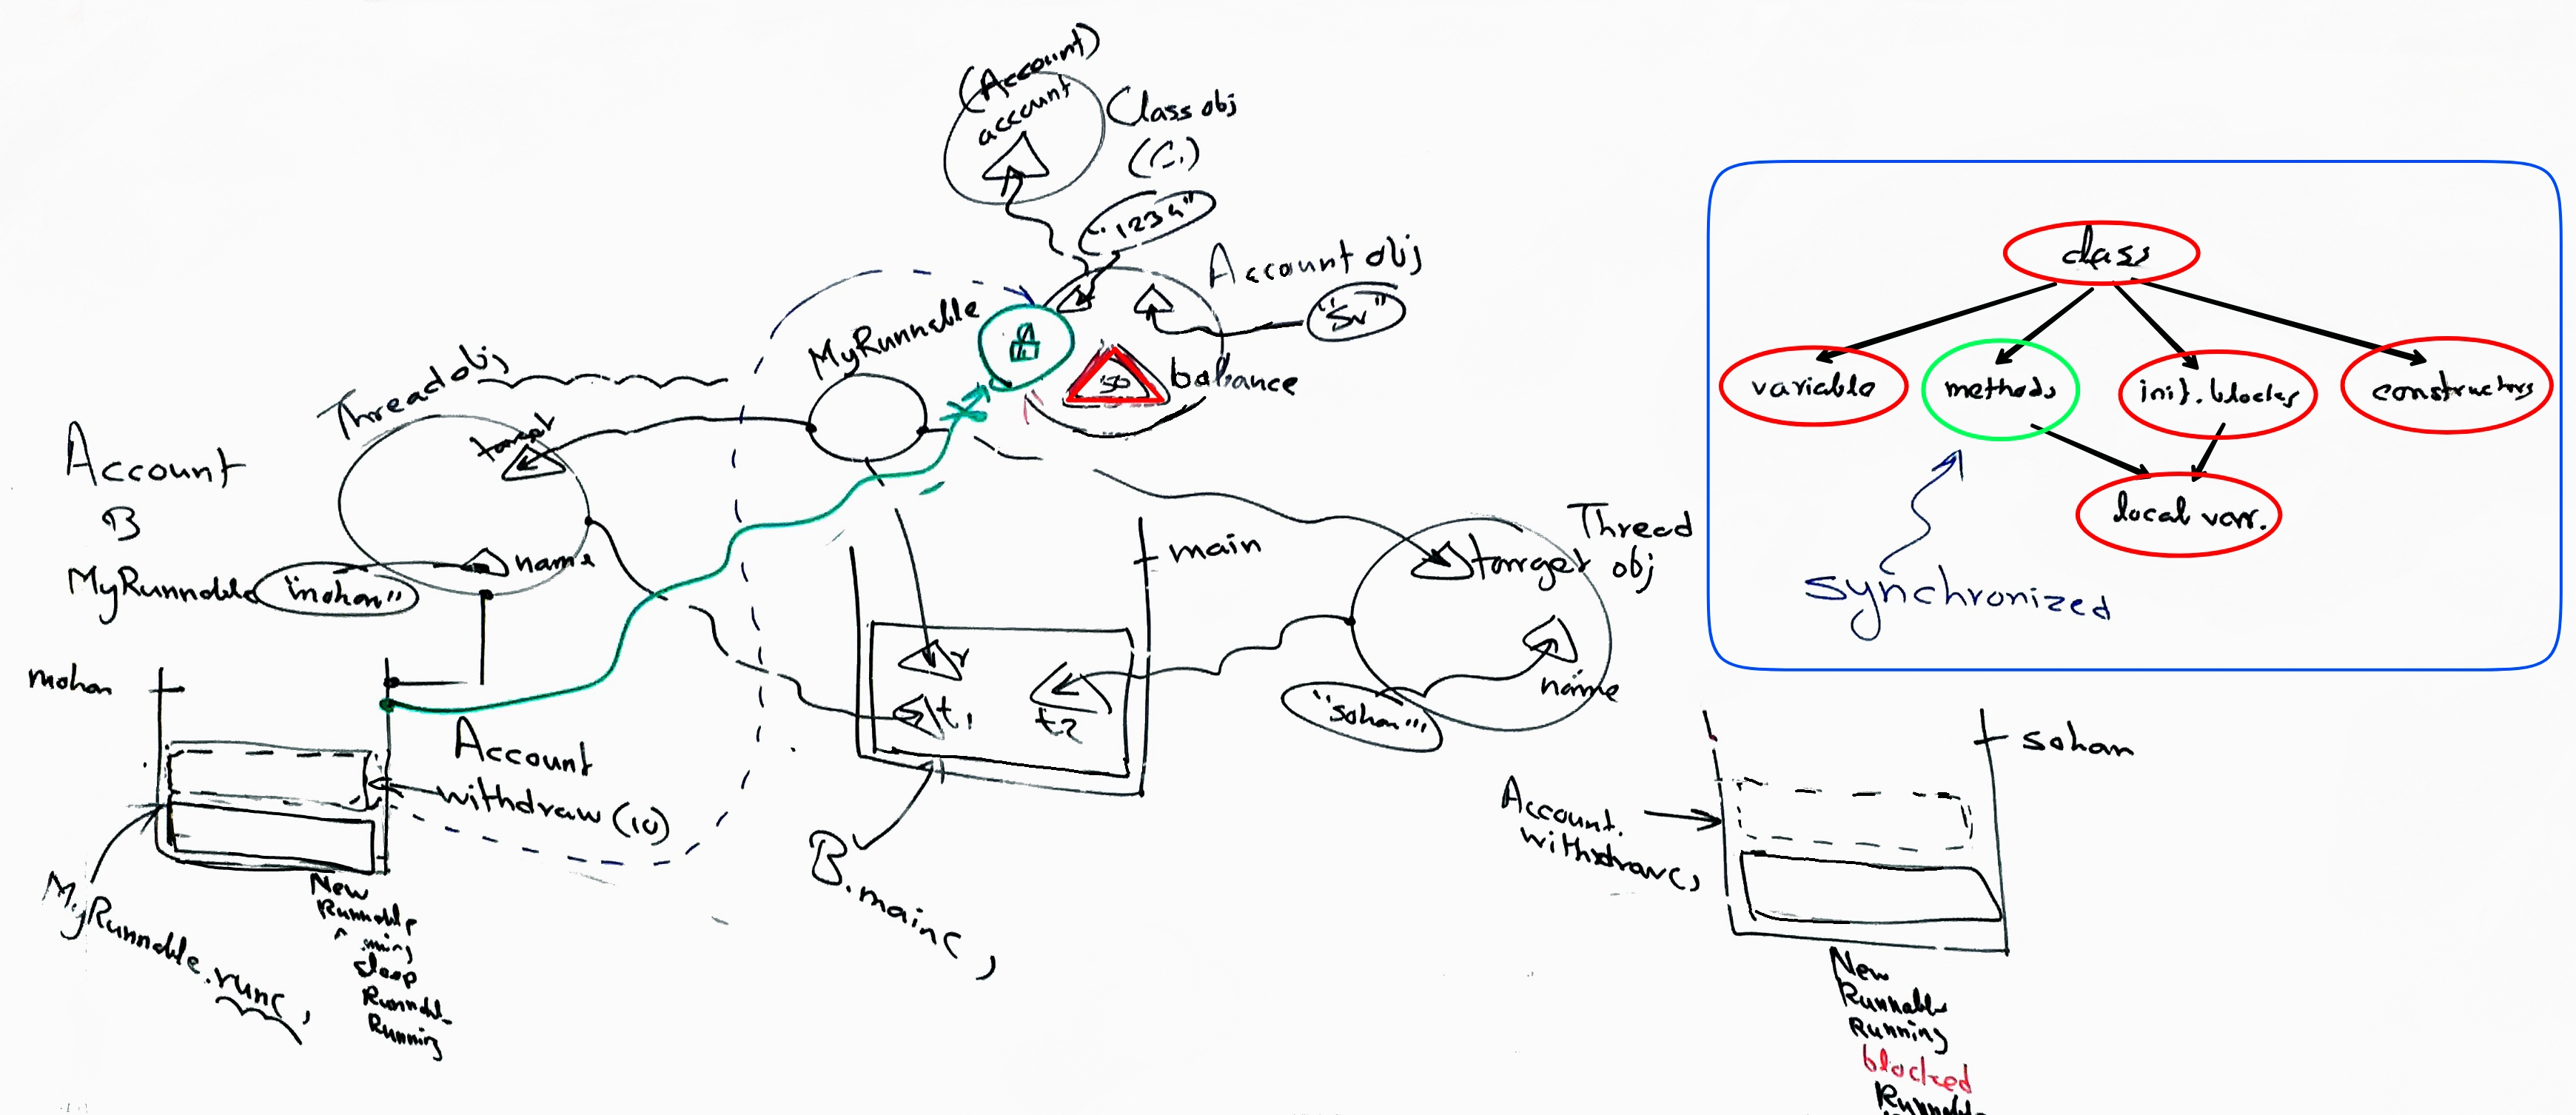 (Account)
account
Class obj
(C.)
"1234"
Account obj
"Sv"
MyRunnable
50
balance
Thread obj
target
Account
B
MyRunnable
"mohan"
name
mohan
Account
withdraw(10)
MyRunnable.run()
New
Runnable
sleep
Runnable
Running
main
r
t1
t2
B.main()
Thread
obj
target
name
"sohan"
sohan
Account.
withdraw()
New
Runnable
Running
blocked
Runnable
class
variable
methods
init. blocks
constructors
local var.
synchronized